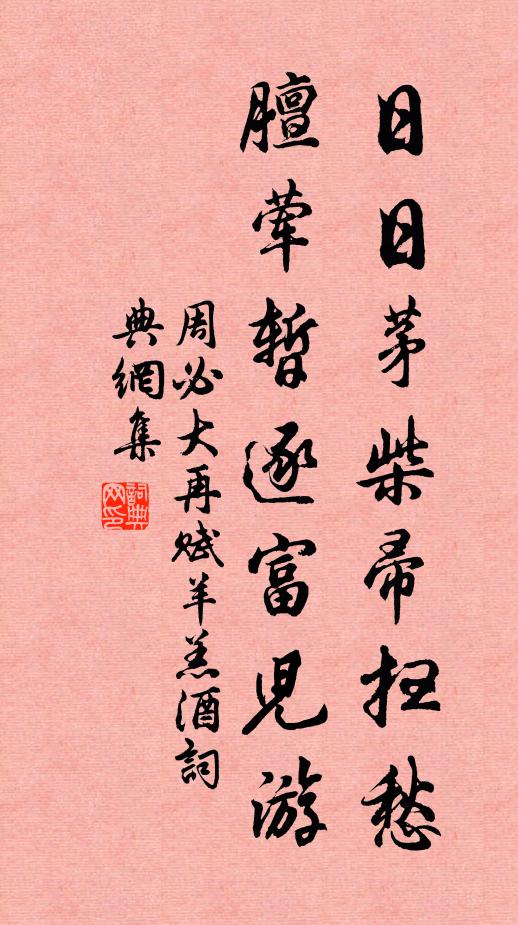 日日茅柴帚扫愁
膻荤暫逐富児游
周必大再赋羊羔酒詞
典網集
詞典
网印